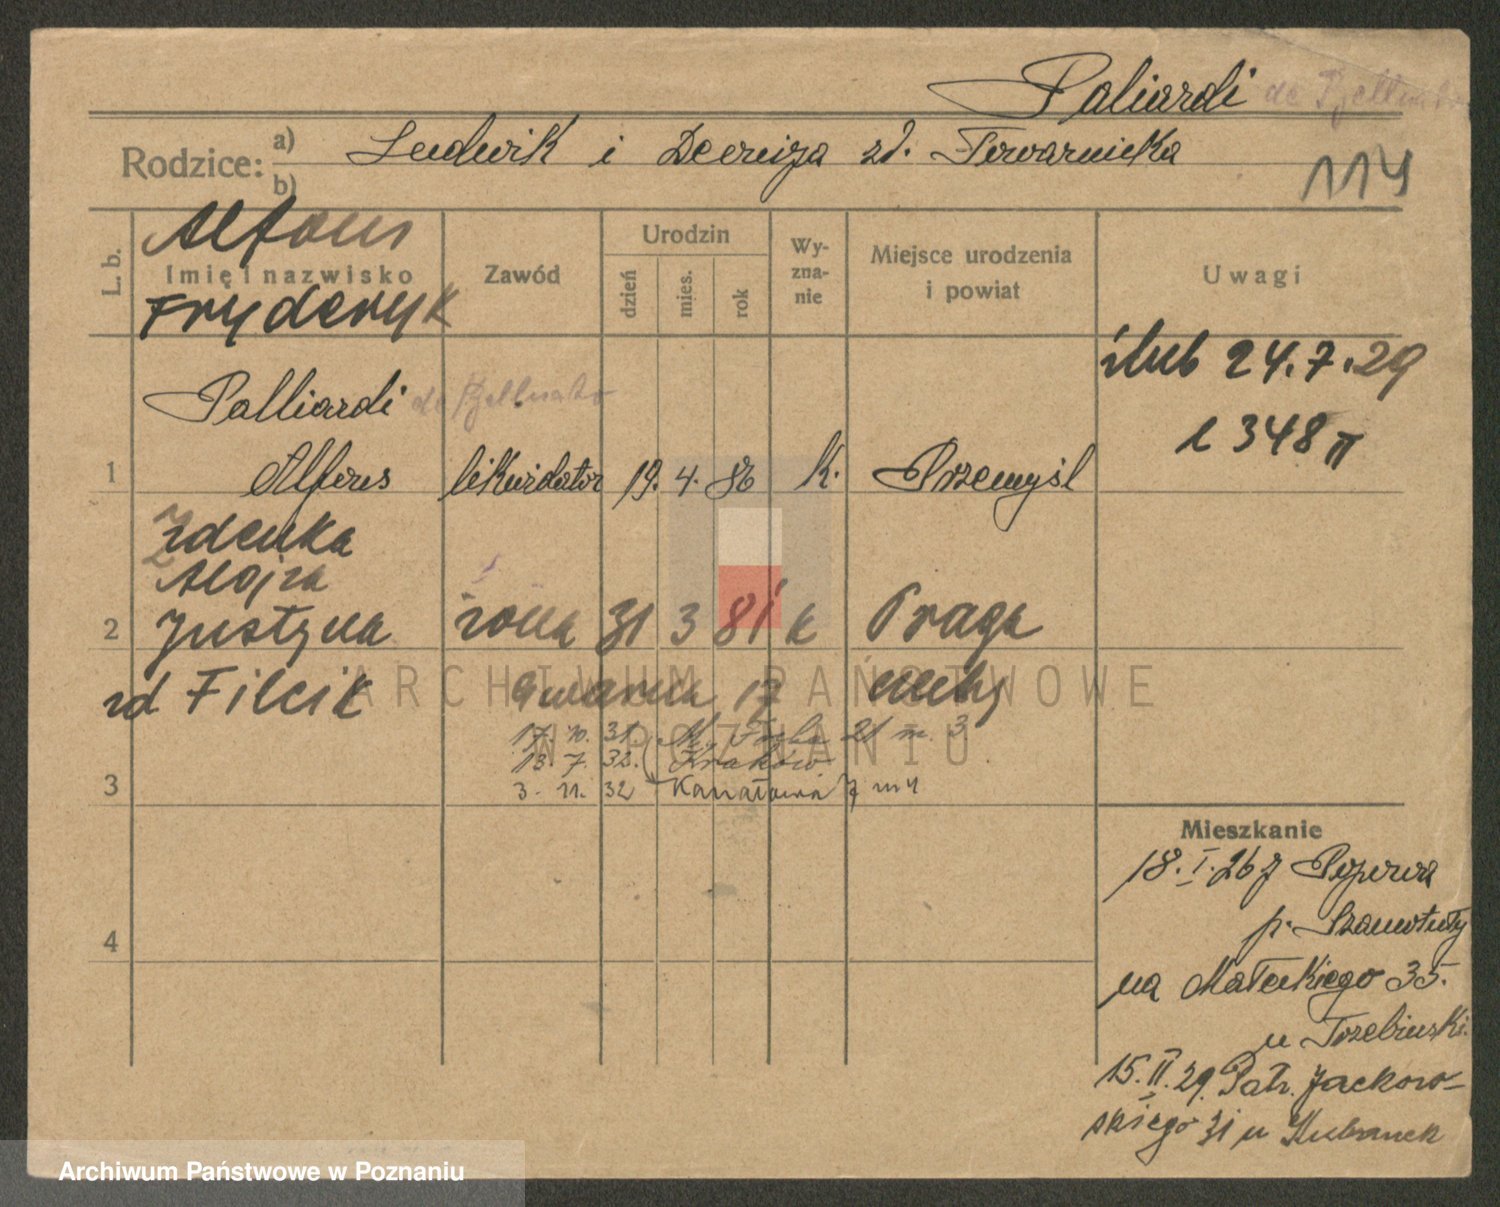 Paliardi de
Rodzice: a) Ludwik i zd. Towarnicka
b)
114
Alfons
L. b. Imię i nazwisko Zawód Urodzin dzień mies. rok Wyznanie Miejsce urodzenia i powiat Uwagi
Fryderyk
ślub 24.7.29
Palliardi de
348 II
1 Alfons likwidator 19. 4. 86 k. Przemyśl
Zdenka
Alojza
2 Justyna żona 31 3 81 k Praga
zd Filcik Gwarna 17
17. 10. 31. M. 21 m. 3
13. 7. 32. Kraków
3. 11. 32 Kanałowa 7 m 4
3
Mieszkanie
18. I. 26 z
4
p. Szamotuły
na Małeckiego 35.
u Trzebiński.
15. II. 29. Patr. Jackow-
skiego 31 u Kubanek
ARCHIWUM PAŃSTWOWE
W POZNANIU
Archiwum Państwowe w Poznaniu